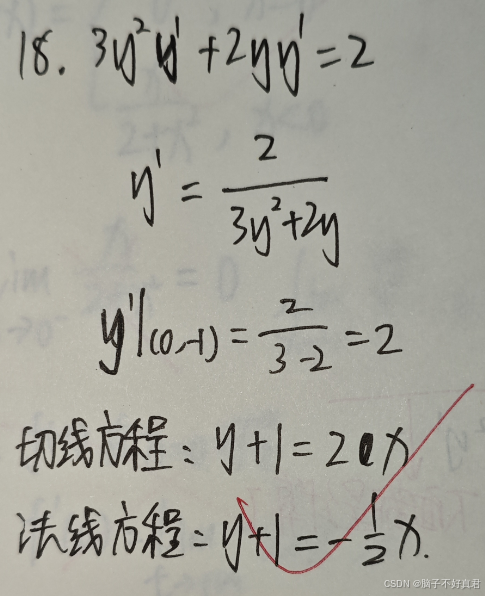 18. 3y²y' + 2yy' = 2
y' = 2/(3y²+2y)
y'|(0,-1) = 2/(3-2) = 2
切线方程: y+1=2x
法线方程: y+1=-1/2 x.
CSDN @脑子不好真君